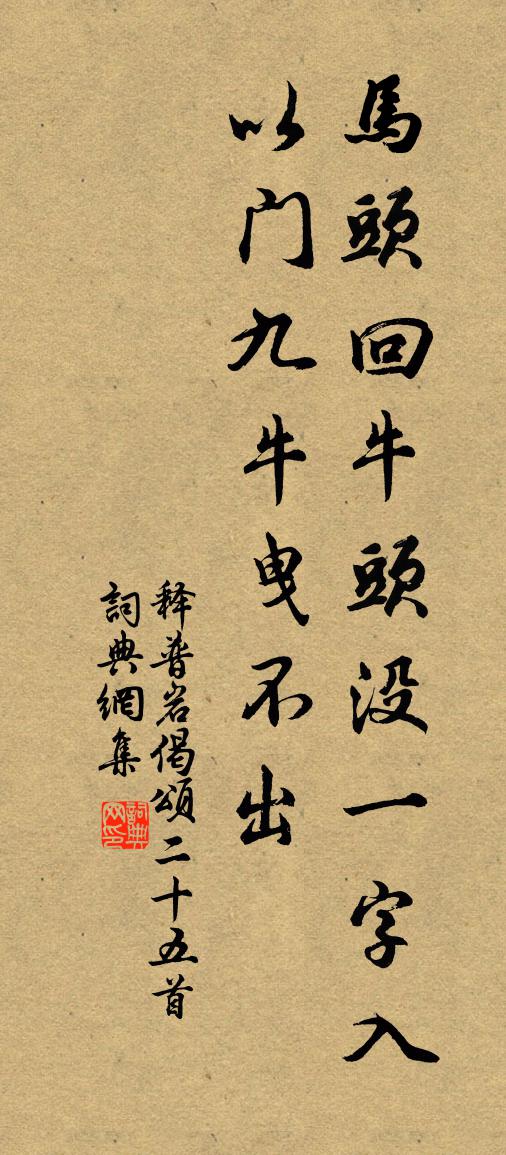 馬頭回牛頭没一字入
以门九牛曳不出
释普岩偈頌二十五首
詞典網集
詞典网印